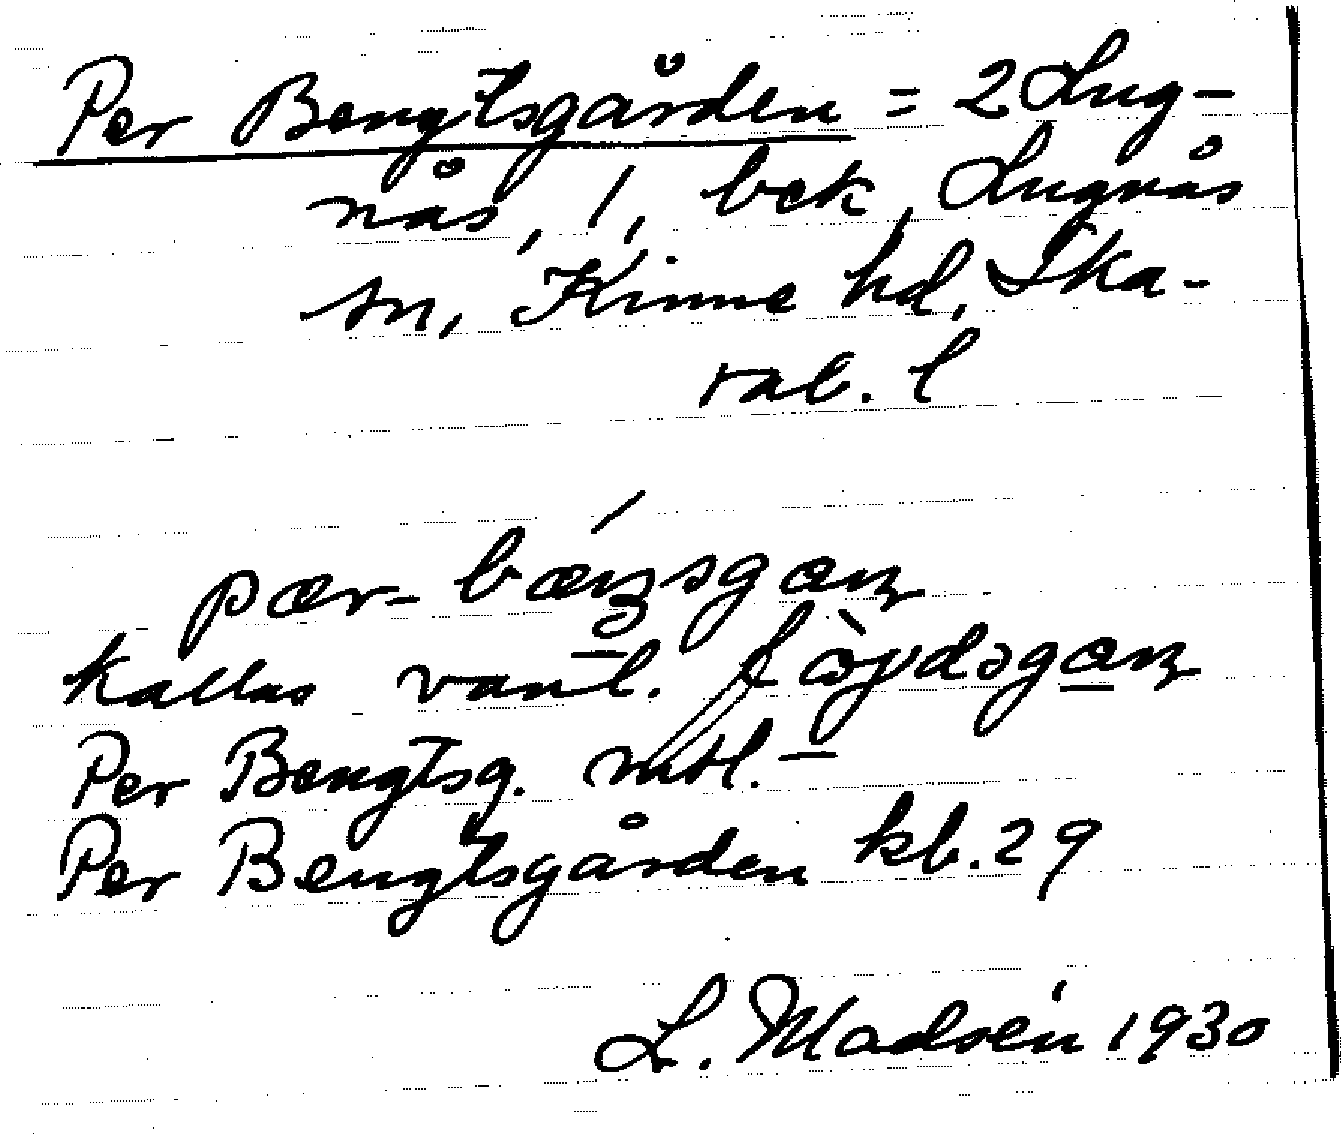 Per Bengtsgården = 2 Lug-
nås, 1, bck, Lugnås
sn, Kinne hd, Ska-
rab. l
kallas vanl.
Per Bengtsg. mtl.
Per Bengtsgården kb. 29
L. Madsén 1930